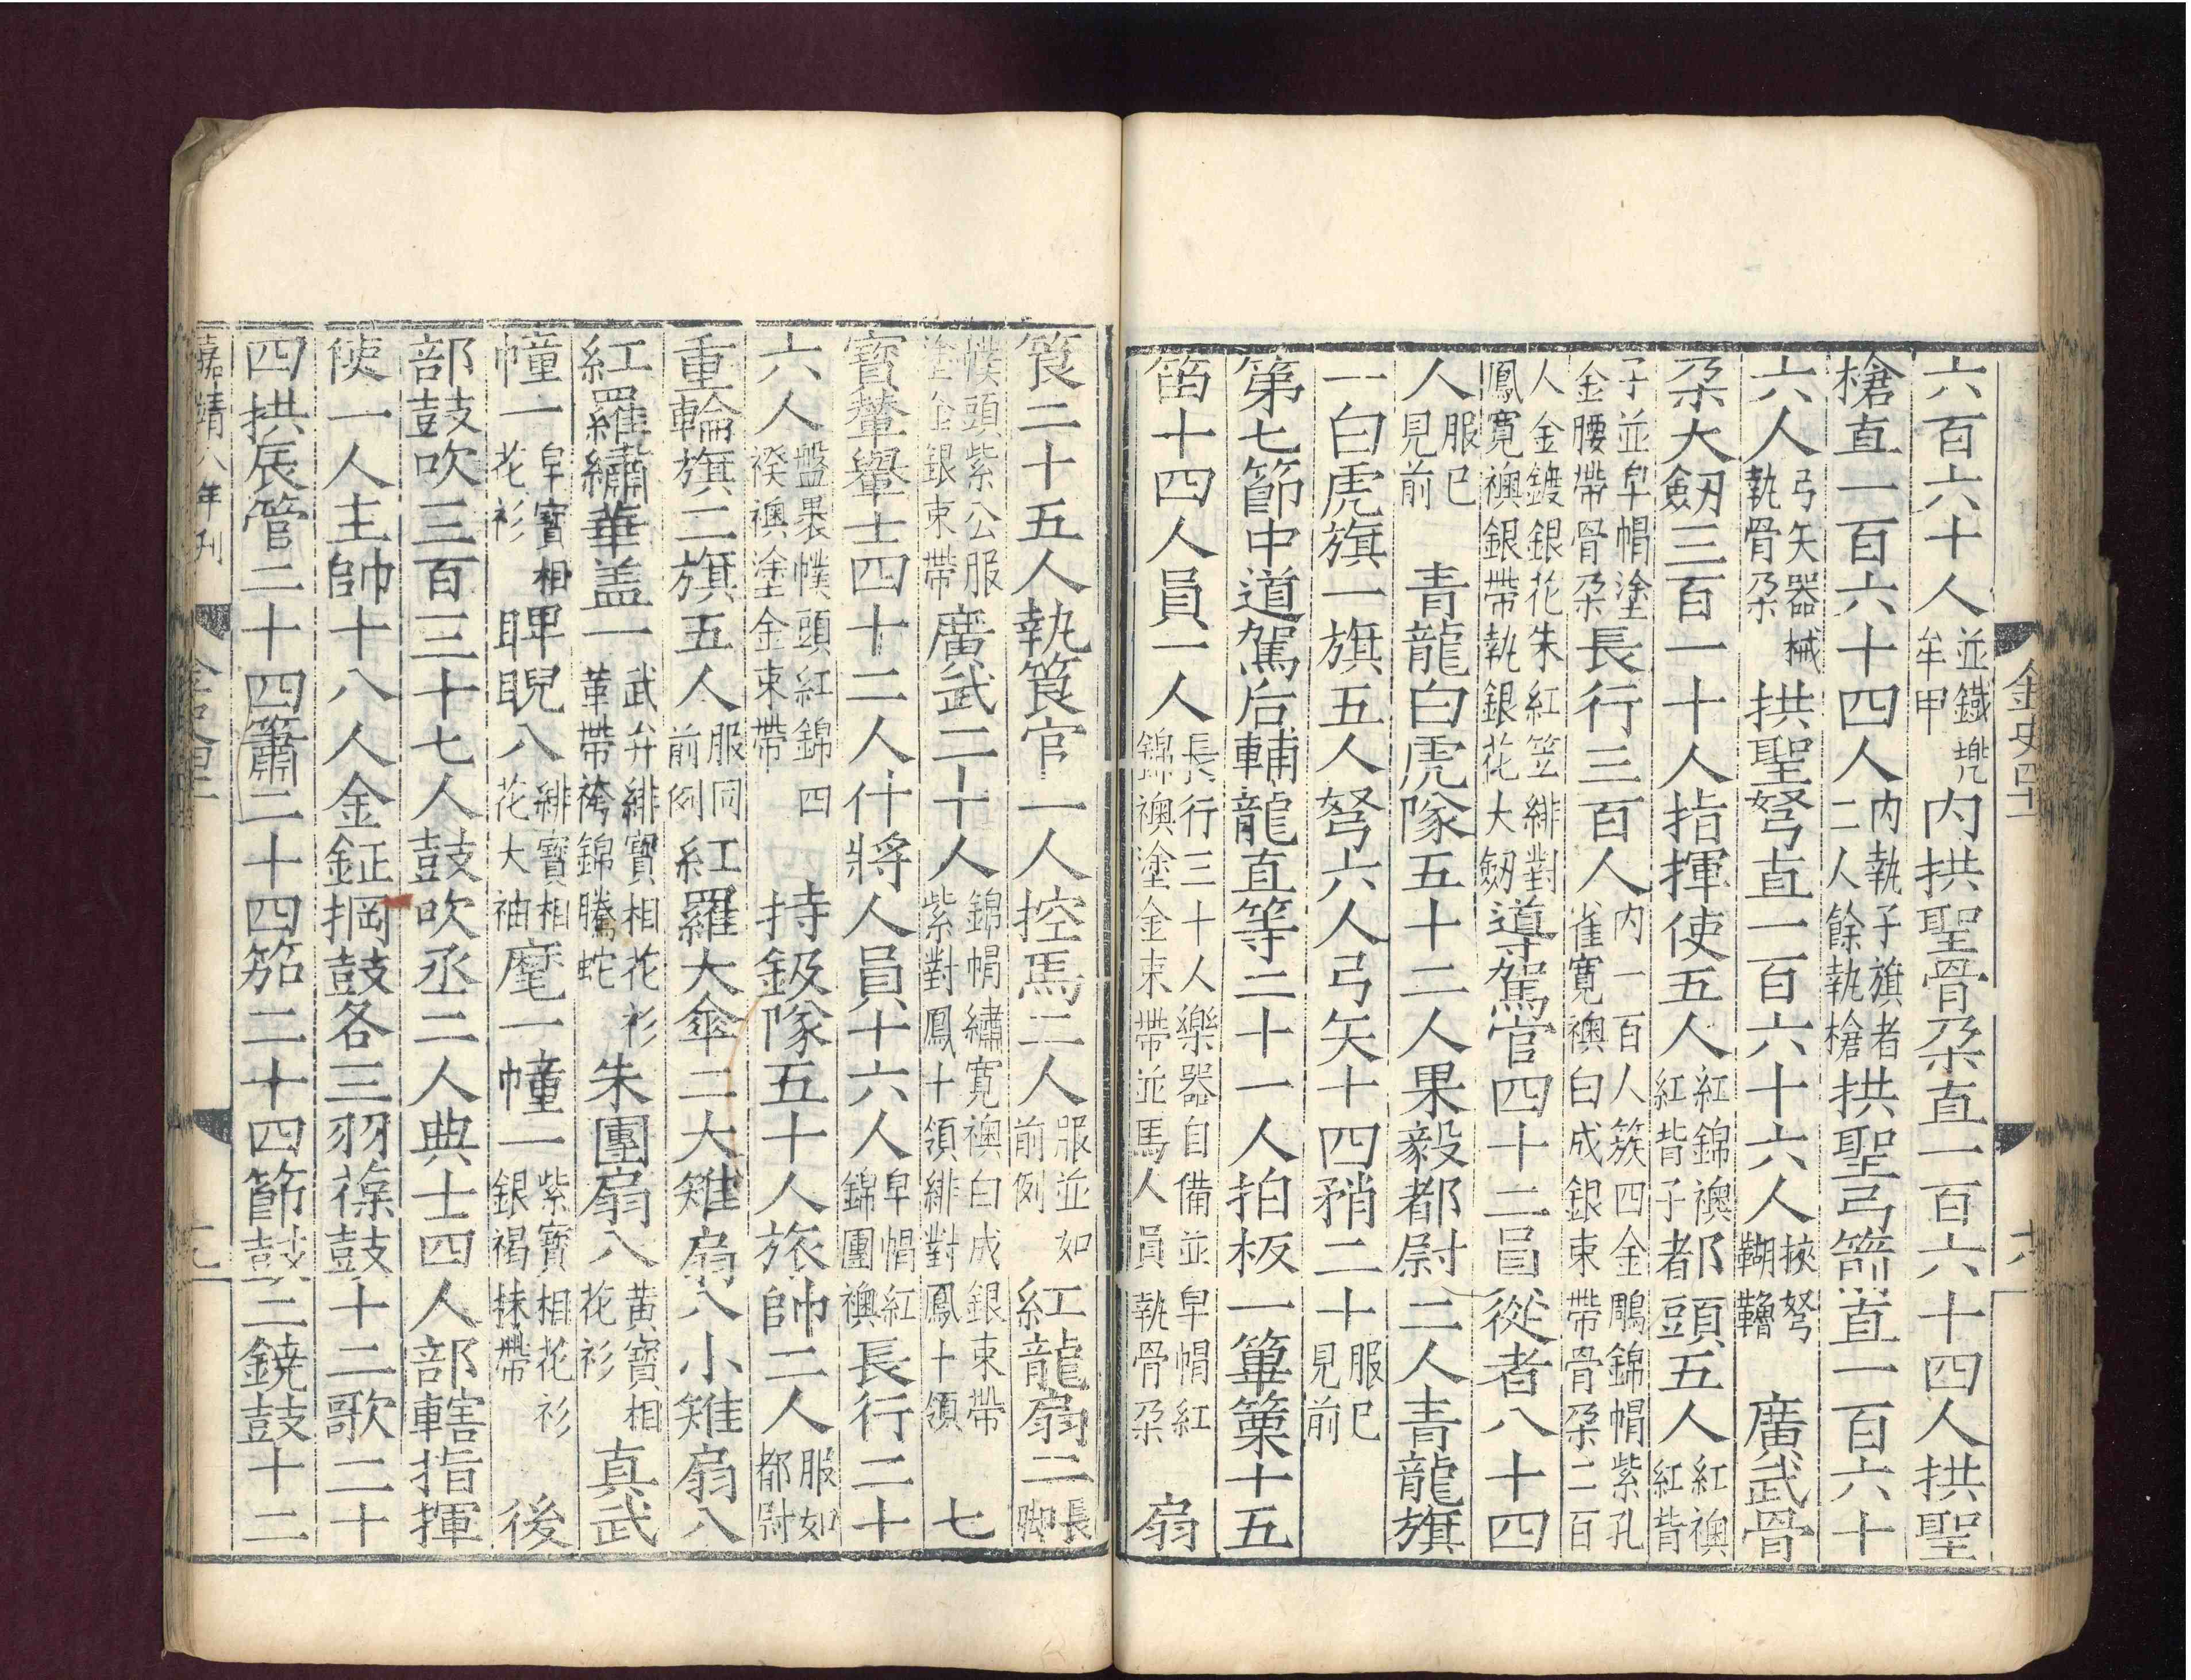 金史四十二
六百六十人並鐵兠牟甲内拱聖骨朶直一百六十四人拱聖
槍直一百六十四人内執子旗者二人餘執槍拱聖弓箭直一百六十
六人弓矢器械執骨朶拱聖弩直一百六十六人挾弩鞬韂廣武骨
朶大劒三百一十人指揮使五人紅錦襖紅背子都頭五人紅襖紅背
子並皁帽塗金腰帶骨朶長行三百人内一百人簇四金鵰錦帽紫孔雀寛襖白成銀束帶骨朶二百
人金鍍銀花朱紅笠緋對鳳寛襖銀帶執銀花大劒導駕官四十二員從者八十四
人服已見前青龍白虎隊五十二人果毅都尉二人青龍旗
一白虎旗一旗五人弩六人弓矢十四矟二十服已見前
第七節中道駕后輔龍直等二十一人拍板一篳篥十五
笛十四人員一人長行三十人樂器自備並皁帽紅錦襖塗金束帶並馬人員執骨朶扇
筤二十五人執筤官一人控馬二人服並如前例紅龍扇二長脚
幞頭紫公服塗金銀束帶廣武二十人錦帽繡寛襖白成銀束帶紫對鳳十領緋對鳳十領七
寳輦轝士四十二人什將人員十六人皁帽紅錦團襖長行二十
六人盤裹幞頭紅錦四䙆襖塗金束帶持鈒隊五十人旅帥二人服如都尉
重輪旗二旗五人服同前例紅羅大傘二大雉扇八小雉扇八
紅羅繡華盖一武弁緋寳相花衫革帶袴錦騰蛇朱團扇八黄寳相花衫真武
幢一皁寳相花衫睥睨八緋寳相花大袖麾一幢一紫寳相花衫銀褐抹帶後
部鼓吹三百三十七人鼓吹丞二人典士四人部轄指揮
使一人主帥十八人金鉦掆鼓各三羽葆鼓十二歌二十
四拱辰管二十四簫二十四笳二十四節鼓二鐃鼓十二
嘉靖八年刊